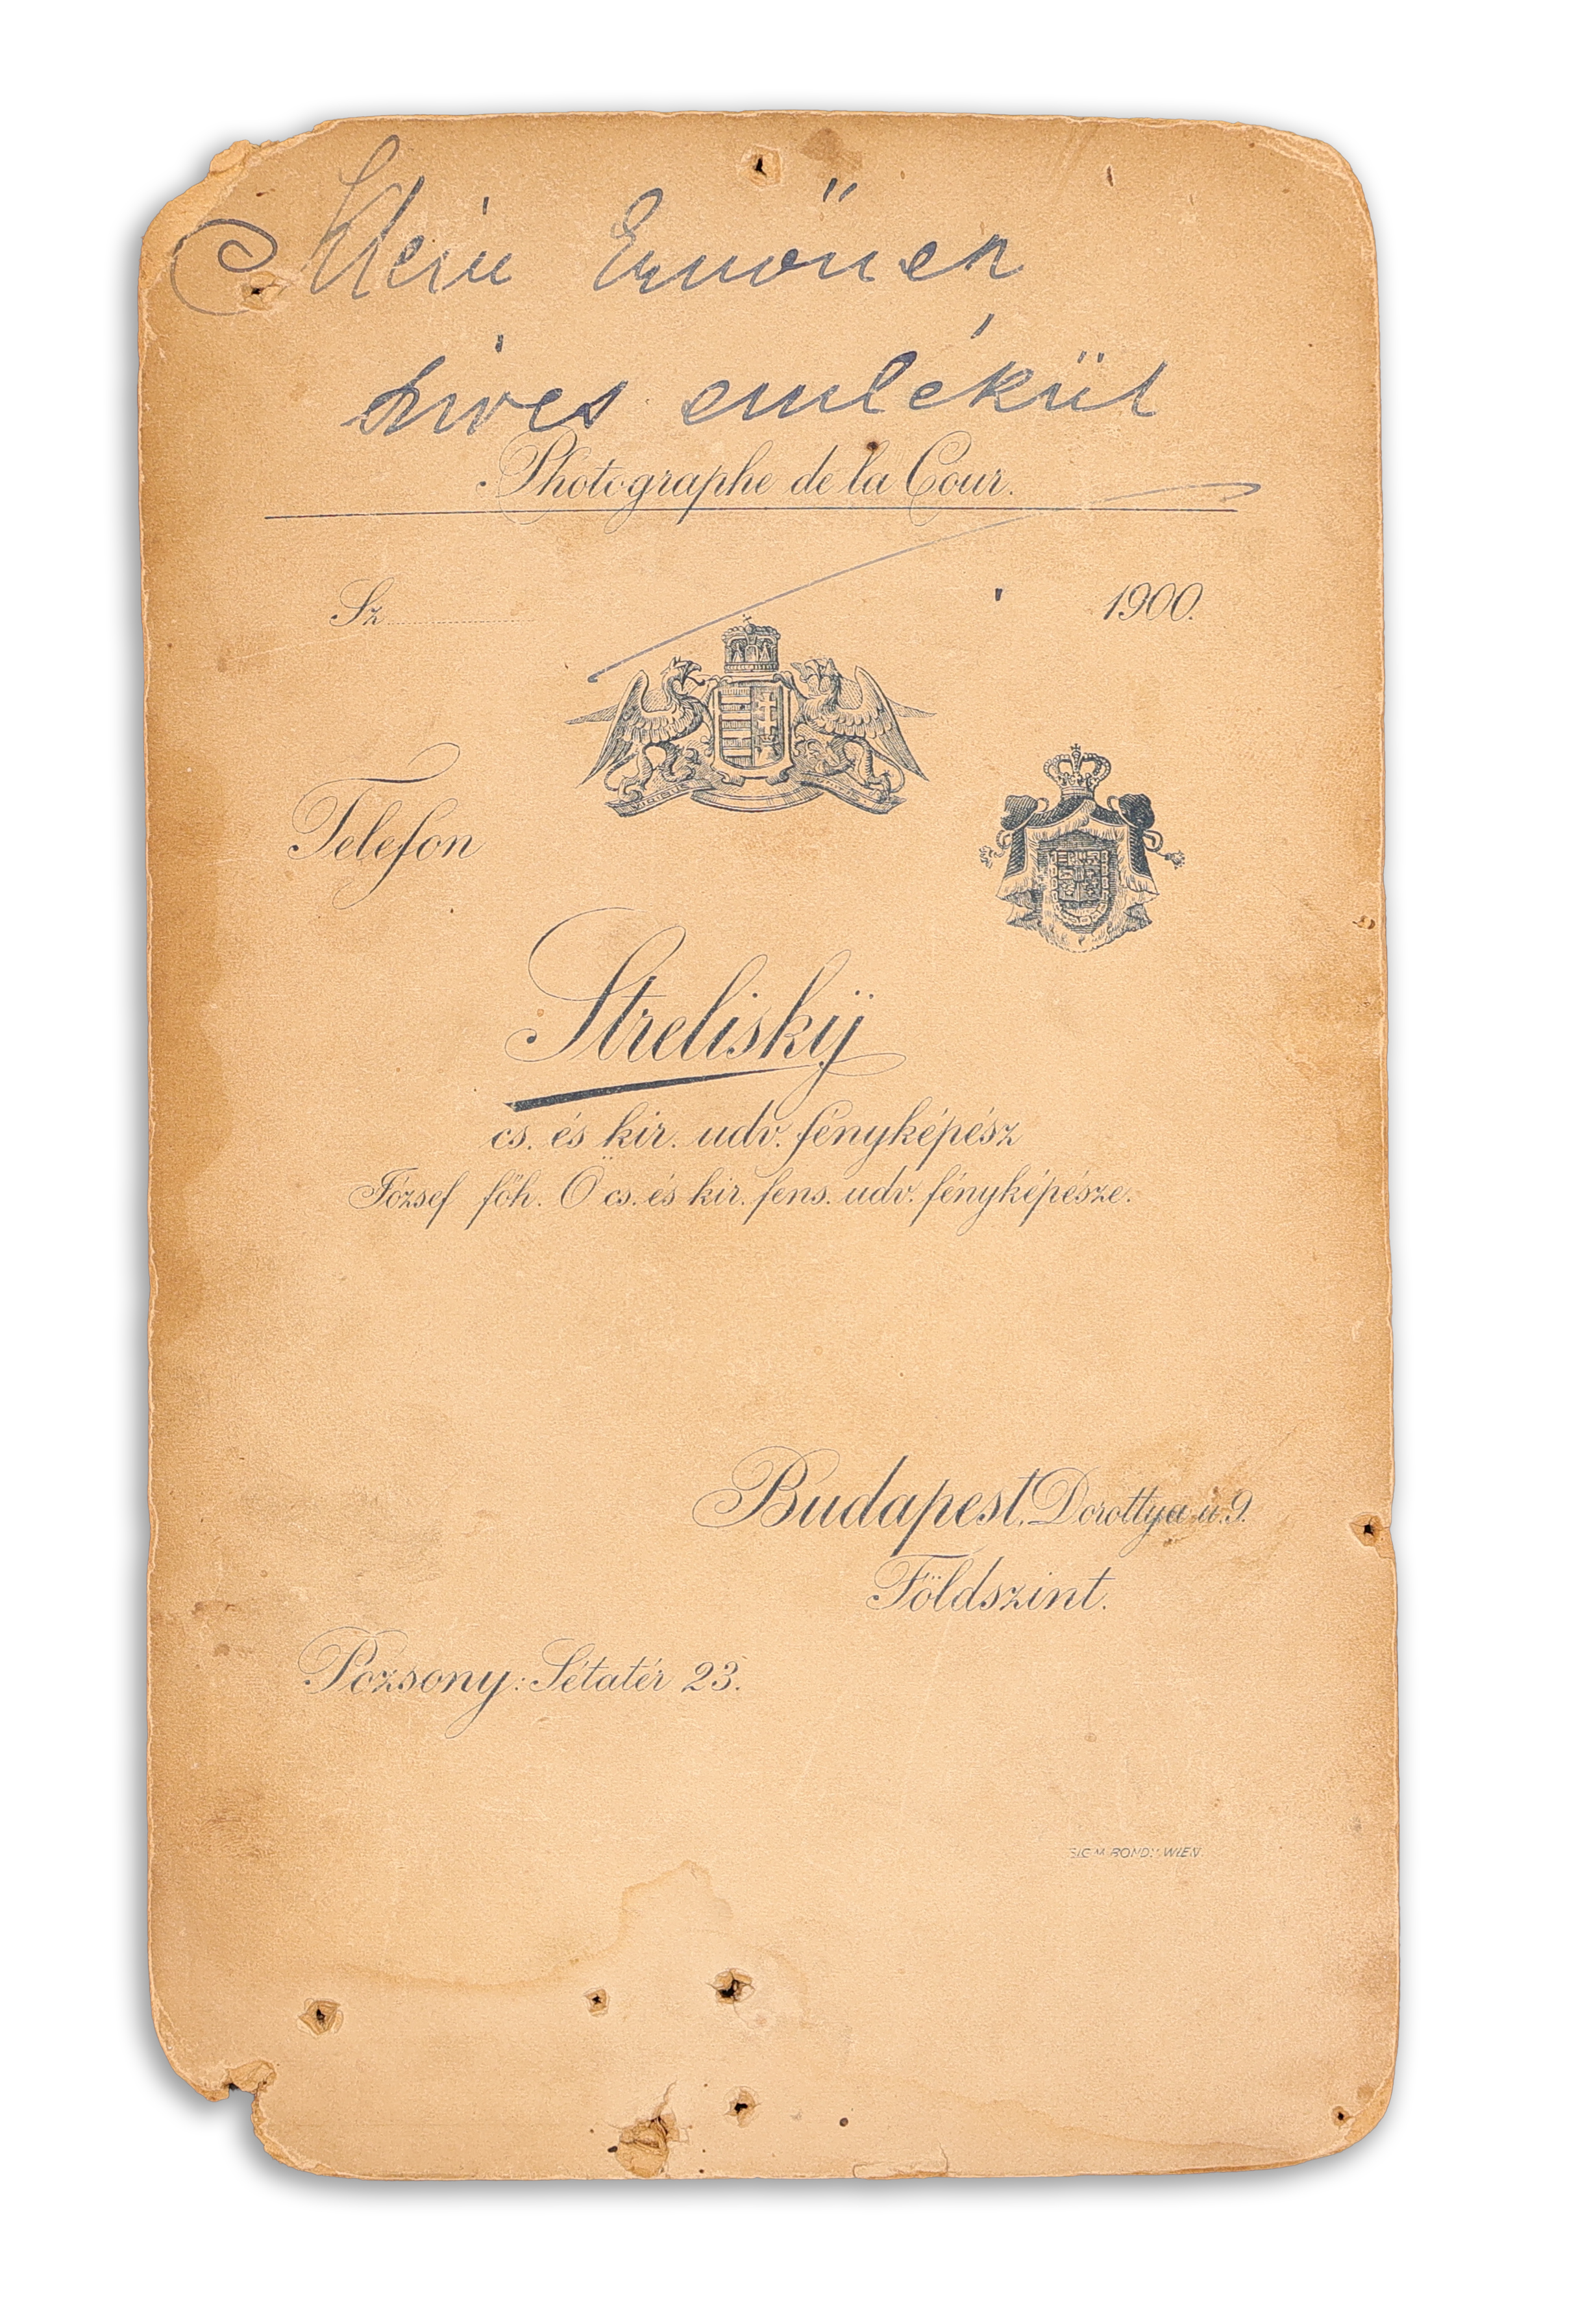 Klein Ernőnek
szíves emlékül
Photographe de la Cour.
Sz. 1900.
Telefon
Streliskÿ
cs. és kir. udv. fényképész
József föh. Ö cs. és kir. fens. udv. fényképésze.
Budapest, Dorottya u. 9.
Földszint.
Pozsony: Sétatér 23.
SIGM. BONDY WIEN.